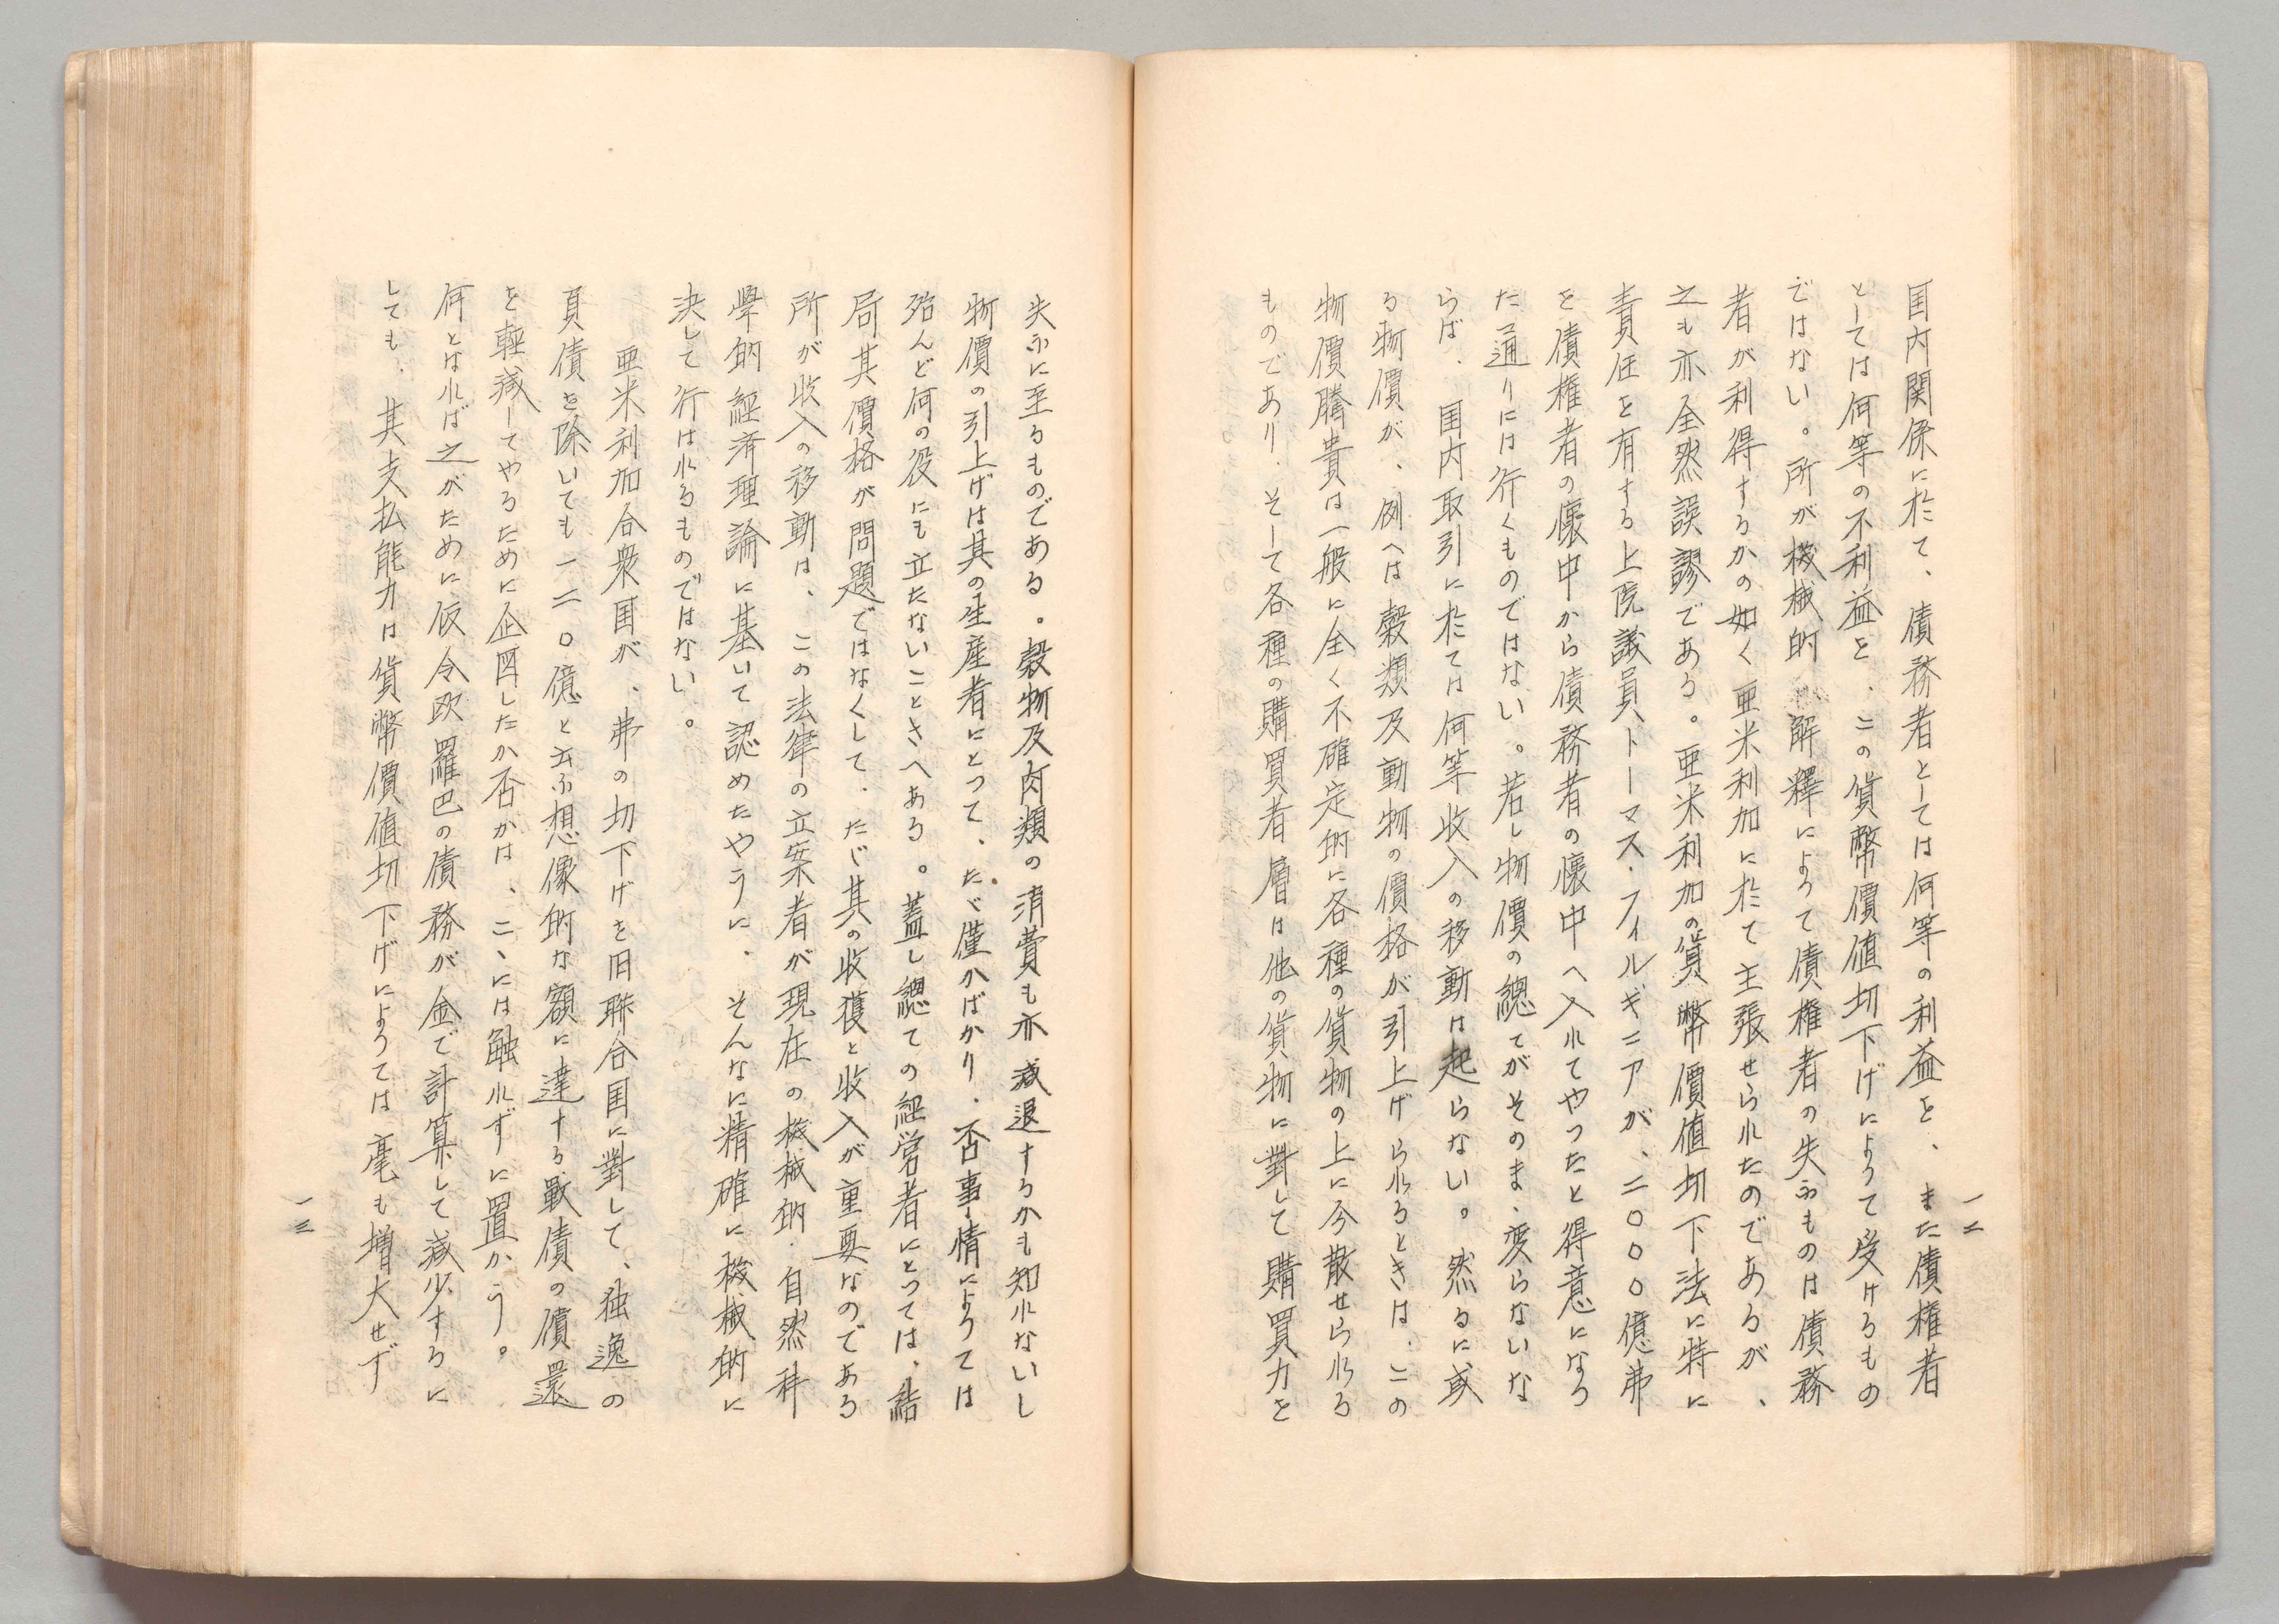 一二
国内関係に於て、債務者としては何等の利益を、また債権者
としては何等の不利益を、この貨幣價値切下げによつて受けるもの
ではない。所が機械的解釋によつて債権者の失ふものは債務
者が利得するかの如く亜米利加に於て主張せられたのであるが、
之も亦全然誤謬である。亜米利加の貨幣價値切下法に特に
責任を有する上院議員トーマス・フィルギニアが、二〇〇億弗
を債権者の懐中から債務者の懐中へ入れてやつたと得意になつ
た通りには行くものではない。若し物價の總てがそのまゝ変らないな
らば、国内取引に於ては何等收入の移動は起らない。然るに或
る物價が、例へは穀類及動物の價格が引上げられるときは、この
物價騰貴は一般に全く不確定的に各種の貨物の上に分散せられる
ものであり、そして各種の購買者層は他の貨物に對して購買力を
失ふに至るものである。穀物及肉類の消費も亦減退するかも知れないし
物價の引上げは其の生産者にとつて、たゞ僅かばかり、否事情によつては
殆んど何の役にも立たないことさへある。蓋し總ての経営者にとつては、結
局其價格が問題ではなくして、たゞ其の收獲と收入が重要なのである
所が收入の移動は、この法律の立案者が現在の機械的・自然科
學的経済理論に基いて認めたやうに、そんなに精確に機械的に
決して行はれるものではない。
亜米利加合衆国が、弗の切下げを旧聯合国に對して、独逸の
負債を除いても一二〇億と云ふ想像的な額に達する戰債の償還
を輕減してやるために企図したか否かは、こゝには触れずに置かう。
何となれば之がために仮令欧羅巴の債務が金で計算して減少するに
しても、其支払能力は貨幣價値切下げによつては毫も増大せず
一三